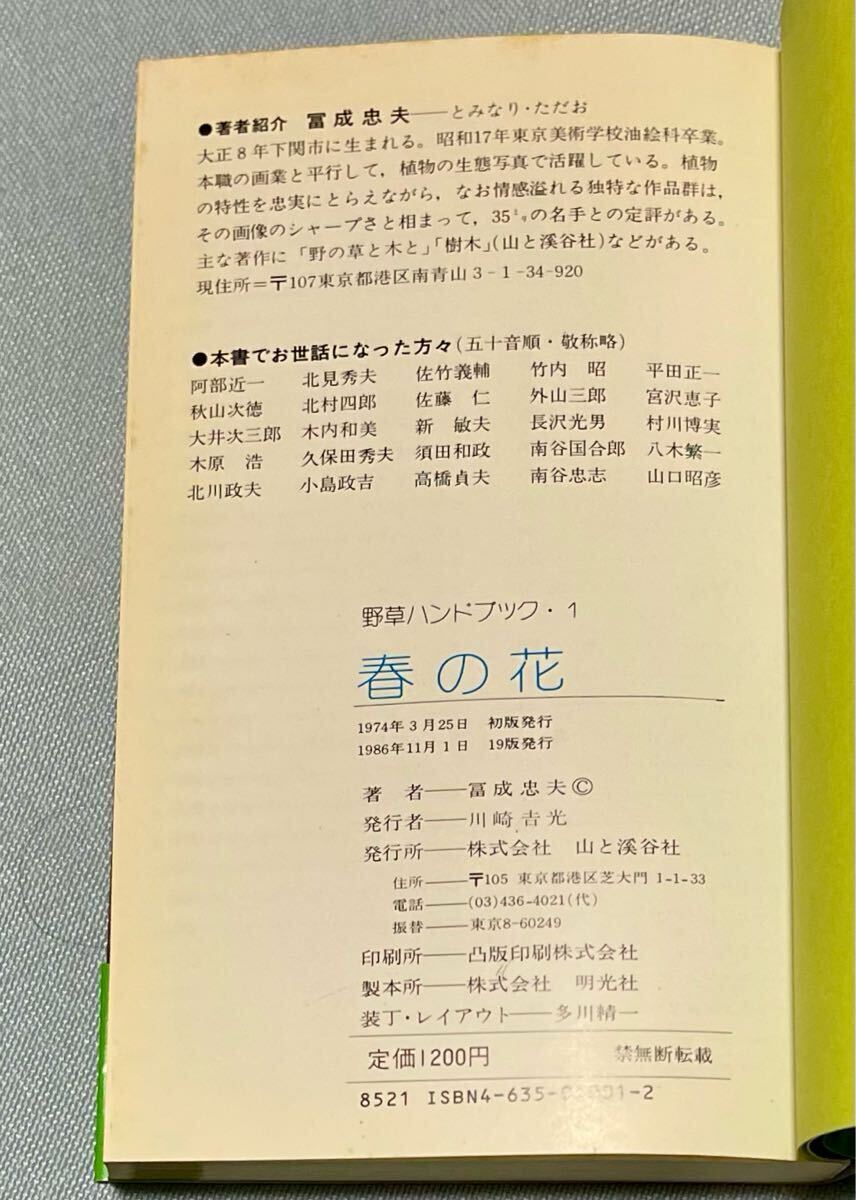 ●著者紹介　冨成忠夫——とみなり・ただお
大正8年下関市に生まれる。昭和17年東京美術学校油絵科卒業。
本職の画業と平行して，植物の生態写真で活躍している。植物
の特性を忠実にとらえながら，なお情感溢れる独特な作品群は，
その画像のシャープさと相まって，35㍉の名手との定評がある。
主な著作に「野の草と木と」「樹木」(山と溪谷社)などがある。
現住所＝〒107東京都港区南青山3-1-34-920
●本書でお世話になった方々(五十音順・敬称略)
阿部近一　北見秀夫　佐竹義輔　竹内　昭　平田正一
秋山次徳　北村四郎　佐藤　仁　外山三郎　宮沢恵子
大井次三郎　木内和美　新　敏夫　長沢光男　村川博実
木原　浩　久保田秀夫　須田和政　南谷国合郎　八木繁一
北川政夫　小島政吉　高橋貞夫　南谷忠志　山口昭彦
野草ハンドブック・1
春の花
1974年3月25日　初版発行
1986年11月1日　19版発行
著　者——冨成忠夫©
発行者——川崎吉光
発行所——株式会社　山と溪谷社
住所——〒105 東京都港区芝大門 1-1-33
電話——(03)436-4021(代)
振替——東京8-60249
印刷所——凸版印刷株式会社
製本所——株式会社　明光社
装丁・レイアウト——多川精一
定価1200円　禁無断転載
8521 ISBN4-635-